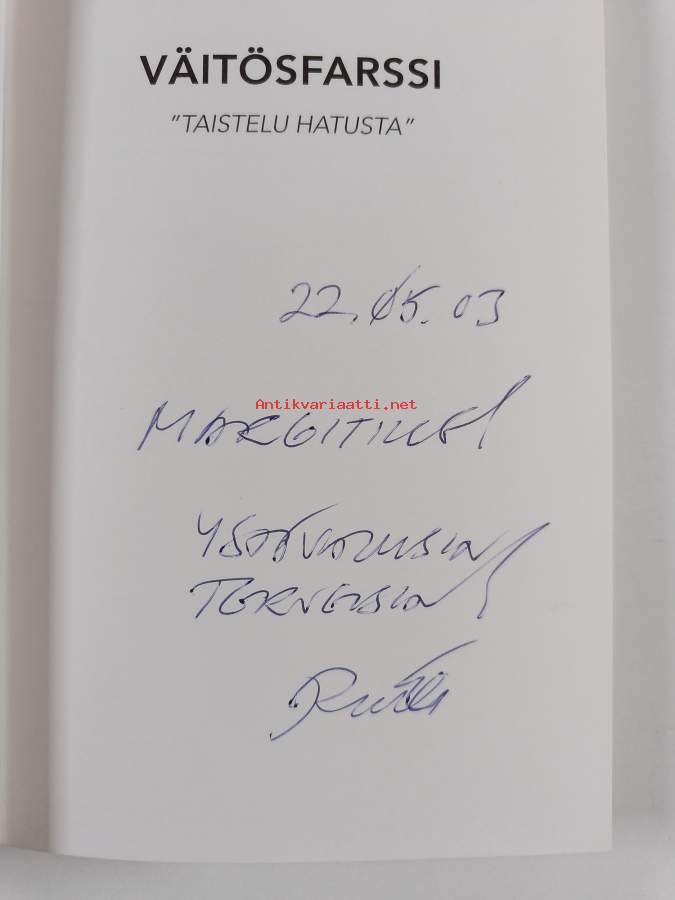 VÄITÖSFARSSI
"TAISTELU HATUSTA"
22.05.03
Antikvariaatti.net
MARGITILLE!
YSTÄVÄLLISIN
TERVEISIN